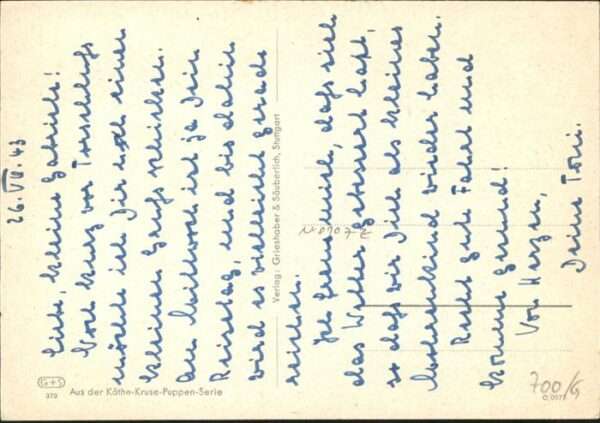 26. VIII. 43
Liebe, kleine Gabriele!
Noch kurz vor Torschluß
möchte ich Dir noch einen
kleinen Gruß schicken.
Am Mittwoch ist ja Dein
Reisetag, und bis dahin
wird es vielleicht gerade
reichen.
Ich freue mich, daß sich
das Wetter gebessert hat,
so daß wir Dich als kleines
wieder haben.
Recht gute Fahrt und
komme gesund!
Von Herzen,
Deine Toni.
Verlag: Grieshaber & Säuberlich, Stuttgart
G+S
372 Aus der Käthe-Kruse-Puppen-Serie
700/G